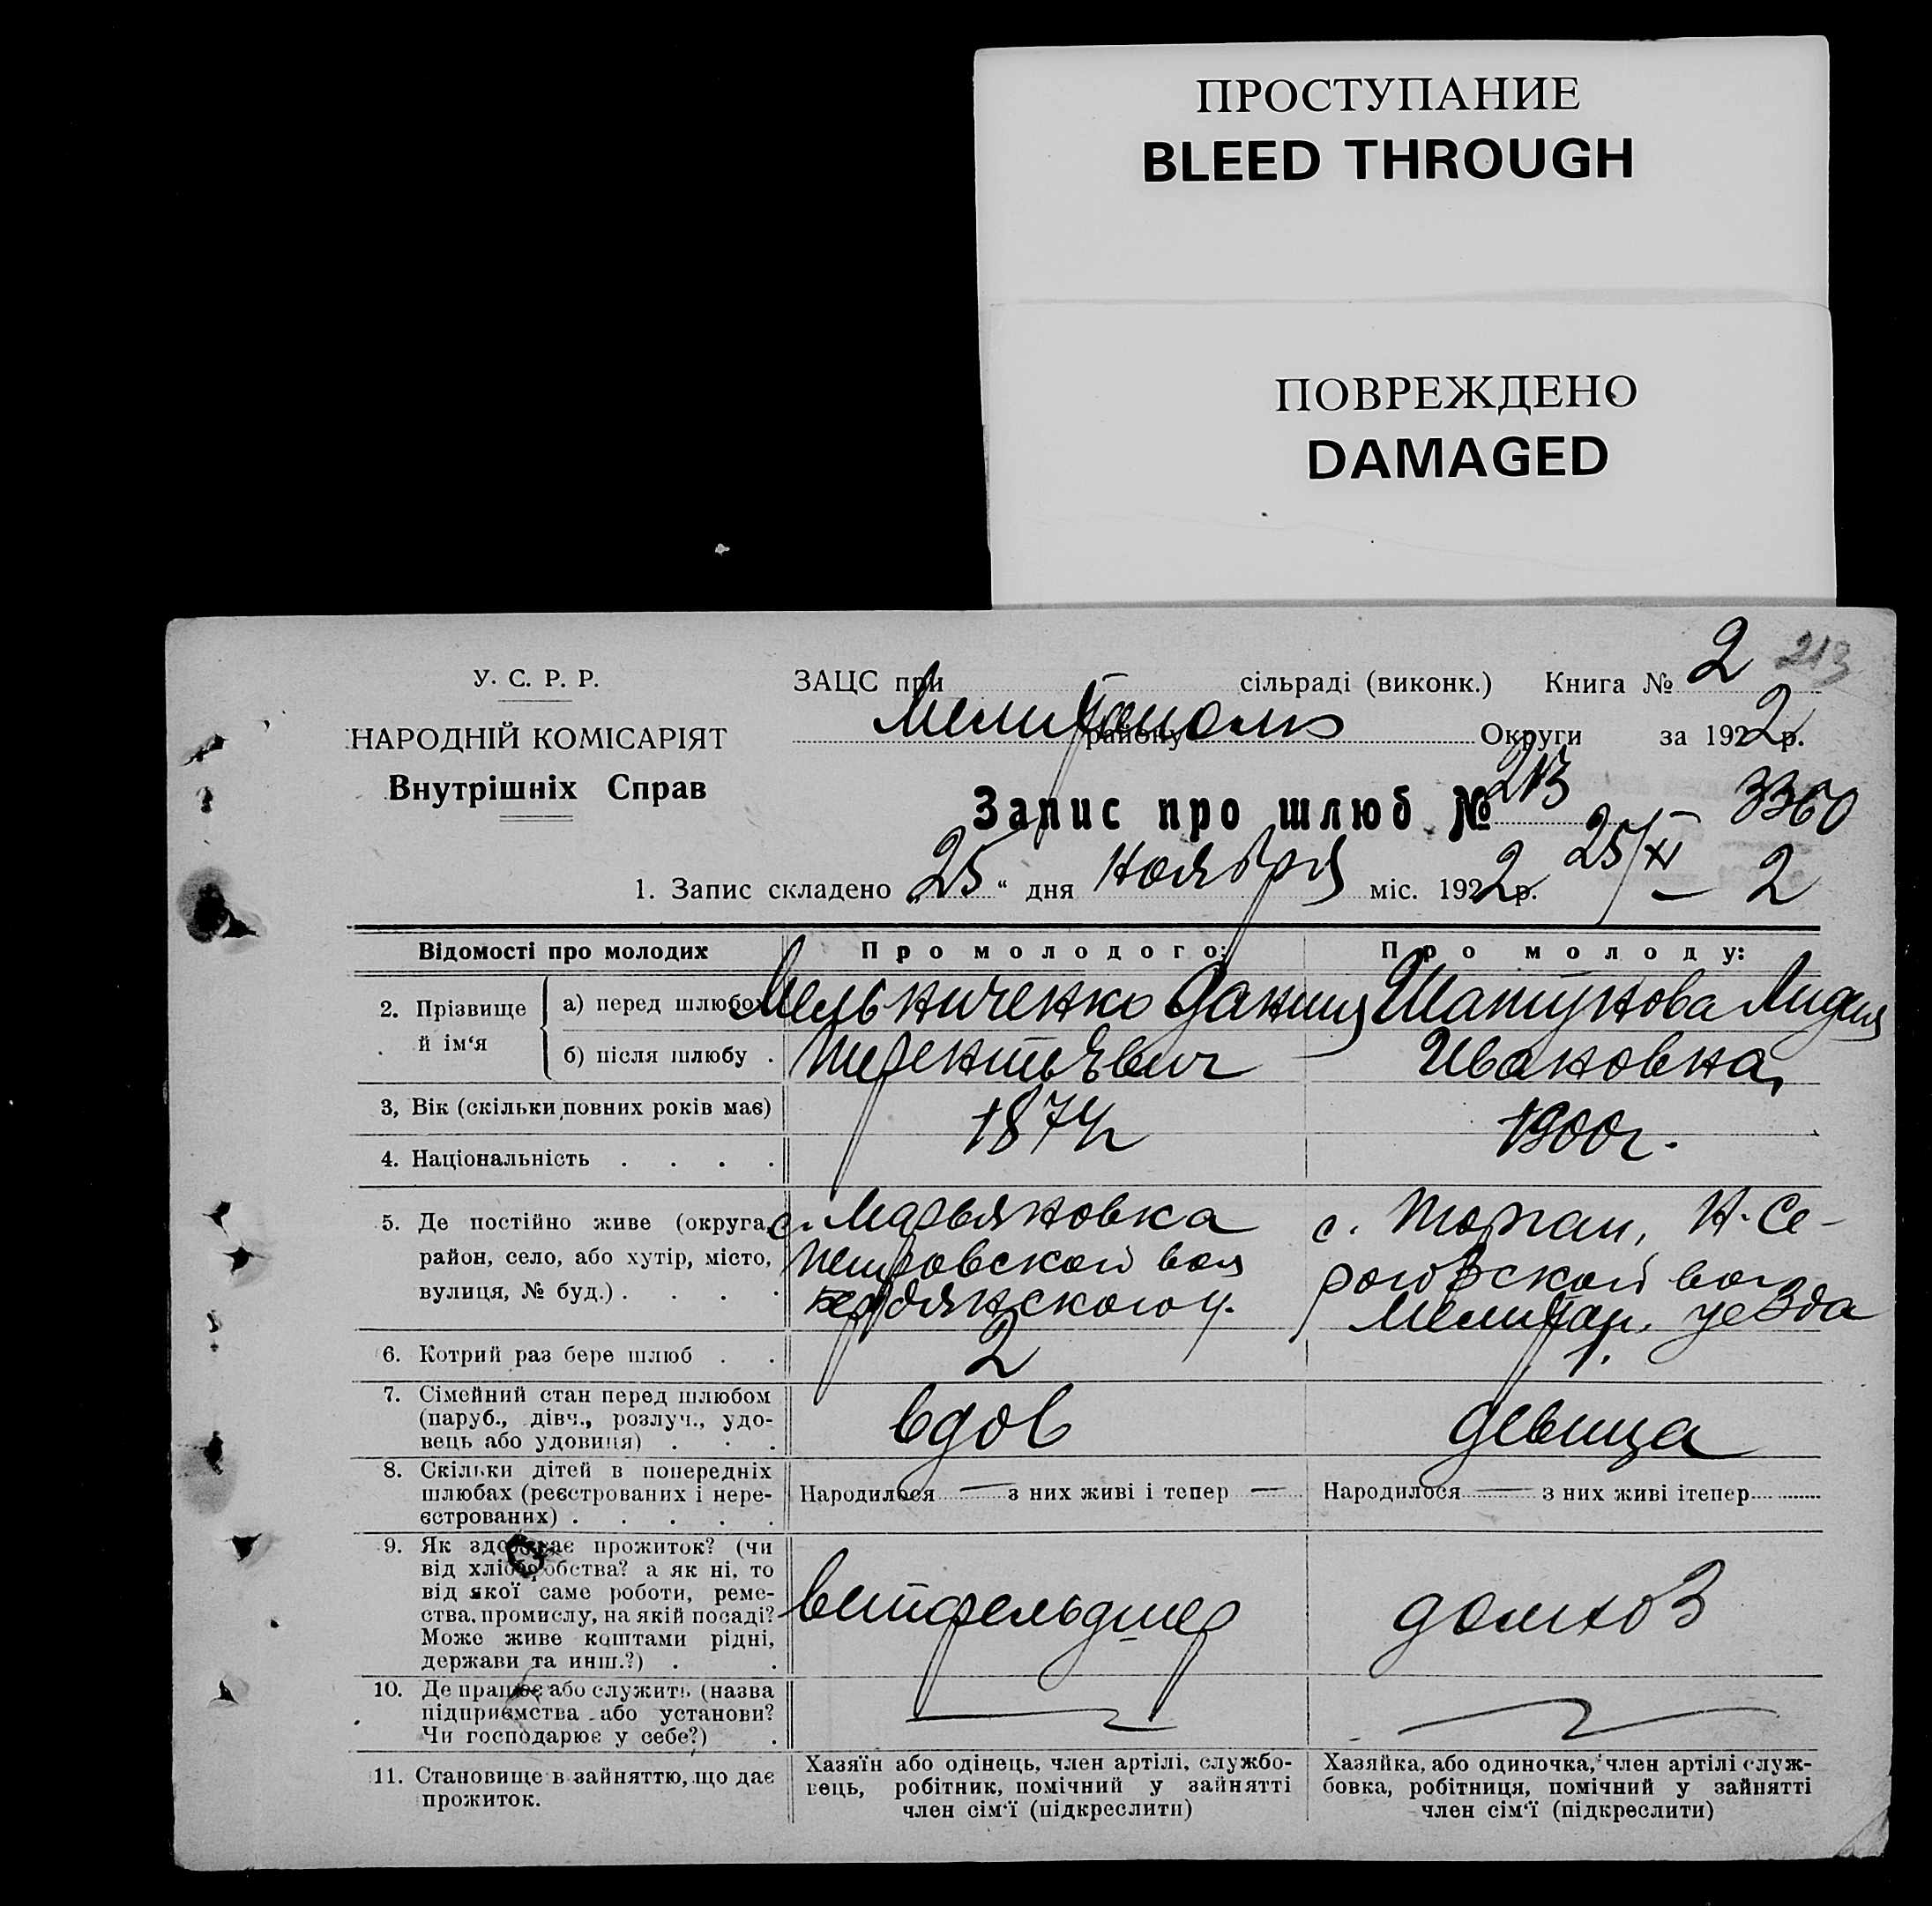 ПРОСТУПАНИЕ
BLEED THROUGH
ПОВРЕЖДЕНО
DAMAGED
У. С. Р. Р.
НАРОДНІЙ КОМІСАРІЯТ
Внутрішніх Справ
ЗАЦС при сільраді (виконк.) Книга № 2 213
Мелитополь району Округи за 1922 р.
Запис про шлюб № 213 3360
1. Запис складено „25“ дня ноября міс. 1922 р. 25/XI – 2
Відомості про молодих Про молодого: Про молоду:
2. Прізвище й ім'я
а) перед шлюбом Мельниченко Данил Шатунова Лидия
б) після шлюбу . Терентьевич Ивановна
3, Вік (скільки повних років має) 1874г 1900г.
4. Національність . . . .
5. Де постійно живе (округа, с. Марьяновка с. Н-Се-
район, село, або хутір, місто, Петровской вол рогозской вол
вулиця, № буд.) . . . . Бердянского у. Мелитоп. уезда
6. Котрий раз бере шлюб . . 2 1.
7. Сімейний стан перед шлюбом
(паруб., дівч., розлуч., удо-
вець або удовиця) . . . вдов девица
8. Скільки дітей в попередніх
шлюбах (реєстрованих і нере-
єстрованих) . . . . .
Народилося — з них живі і тепер — Народилося — з них живі ітепер
9. Як здобуває прожиток? (чи
від хліборобства? а як ні, то
від якої саме роботи, реме-
ства, промислу, на якій посаді?
Може живе коштами рідні,
держави та инш.?) . .
ветфельдшер домхоз
10. Де працює або служить (назва
підприємства або установи?
Чи господарює у себе?) .
11. Становище в зайняттю, що дає
прожиток.
Хазяїн або одінець, член артілі, службо-
вець, робітник, помічний у зайнятті
член сім'ї (підкреслити)
Хазяйка, або одиночка, член артілі служ-
бовка, робітниця, помічний у зайнятті
член сім'ї (підкреслити)